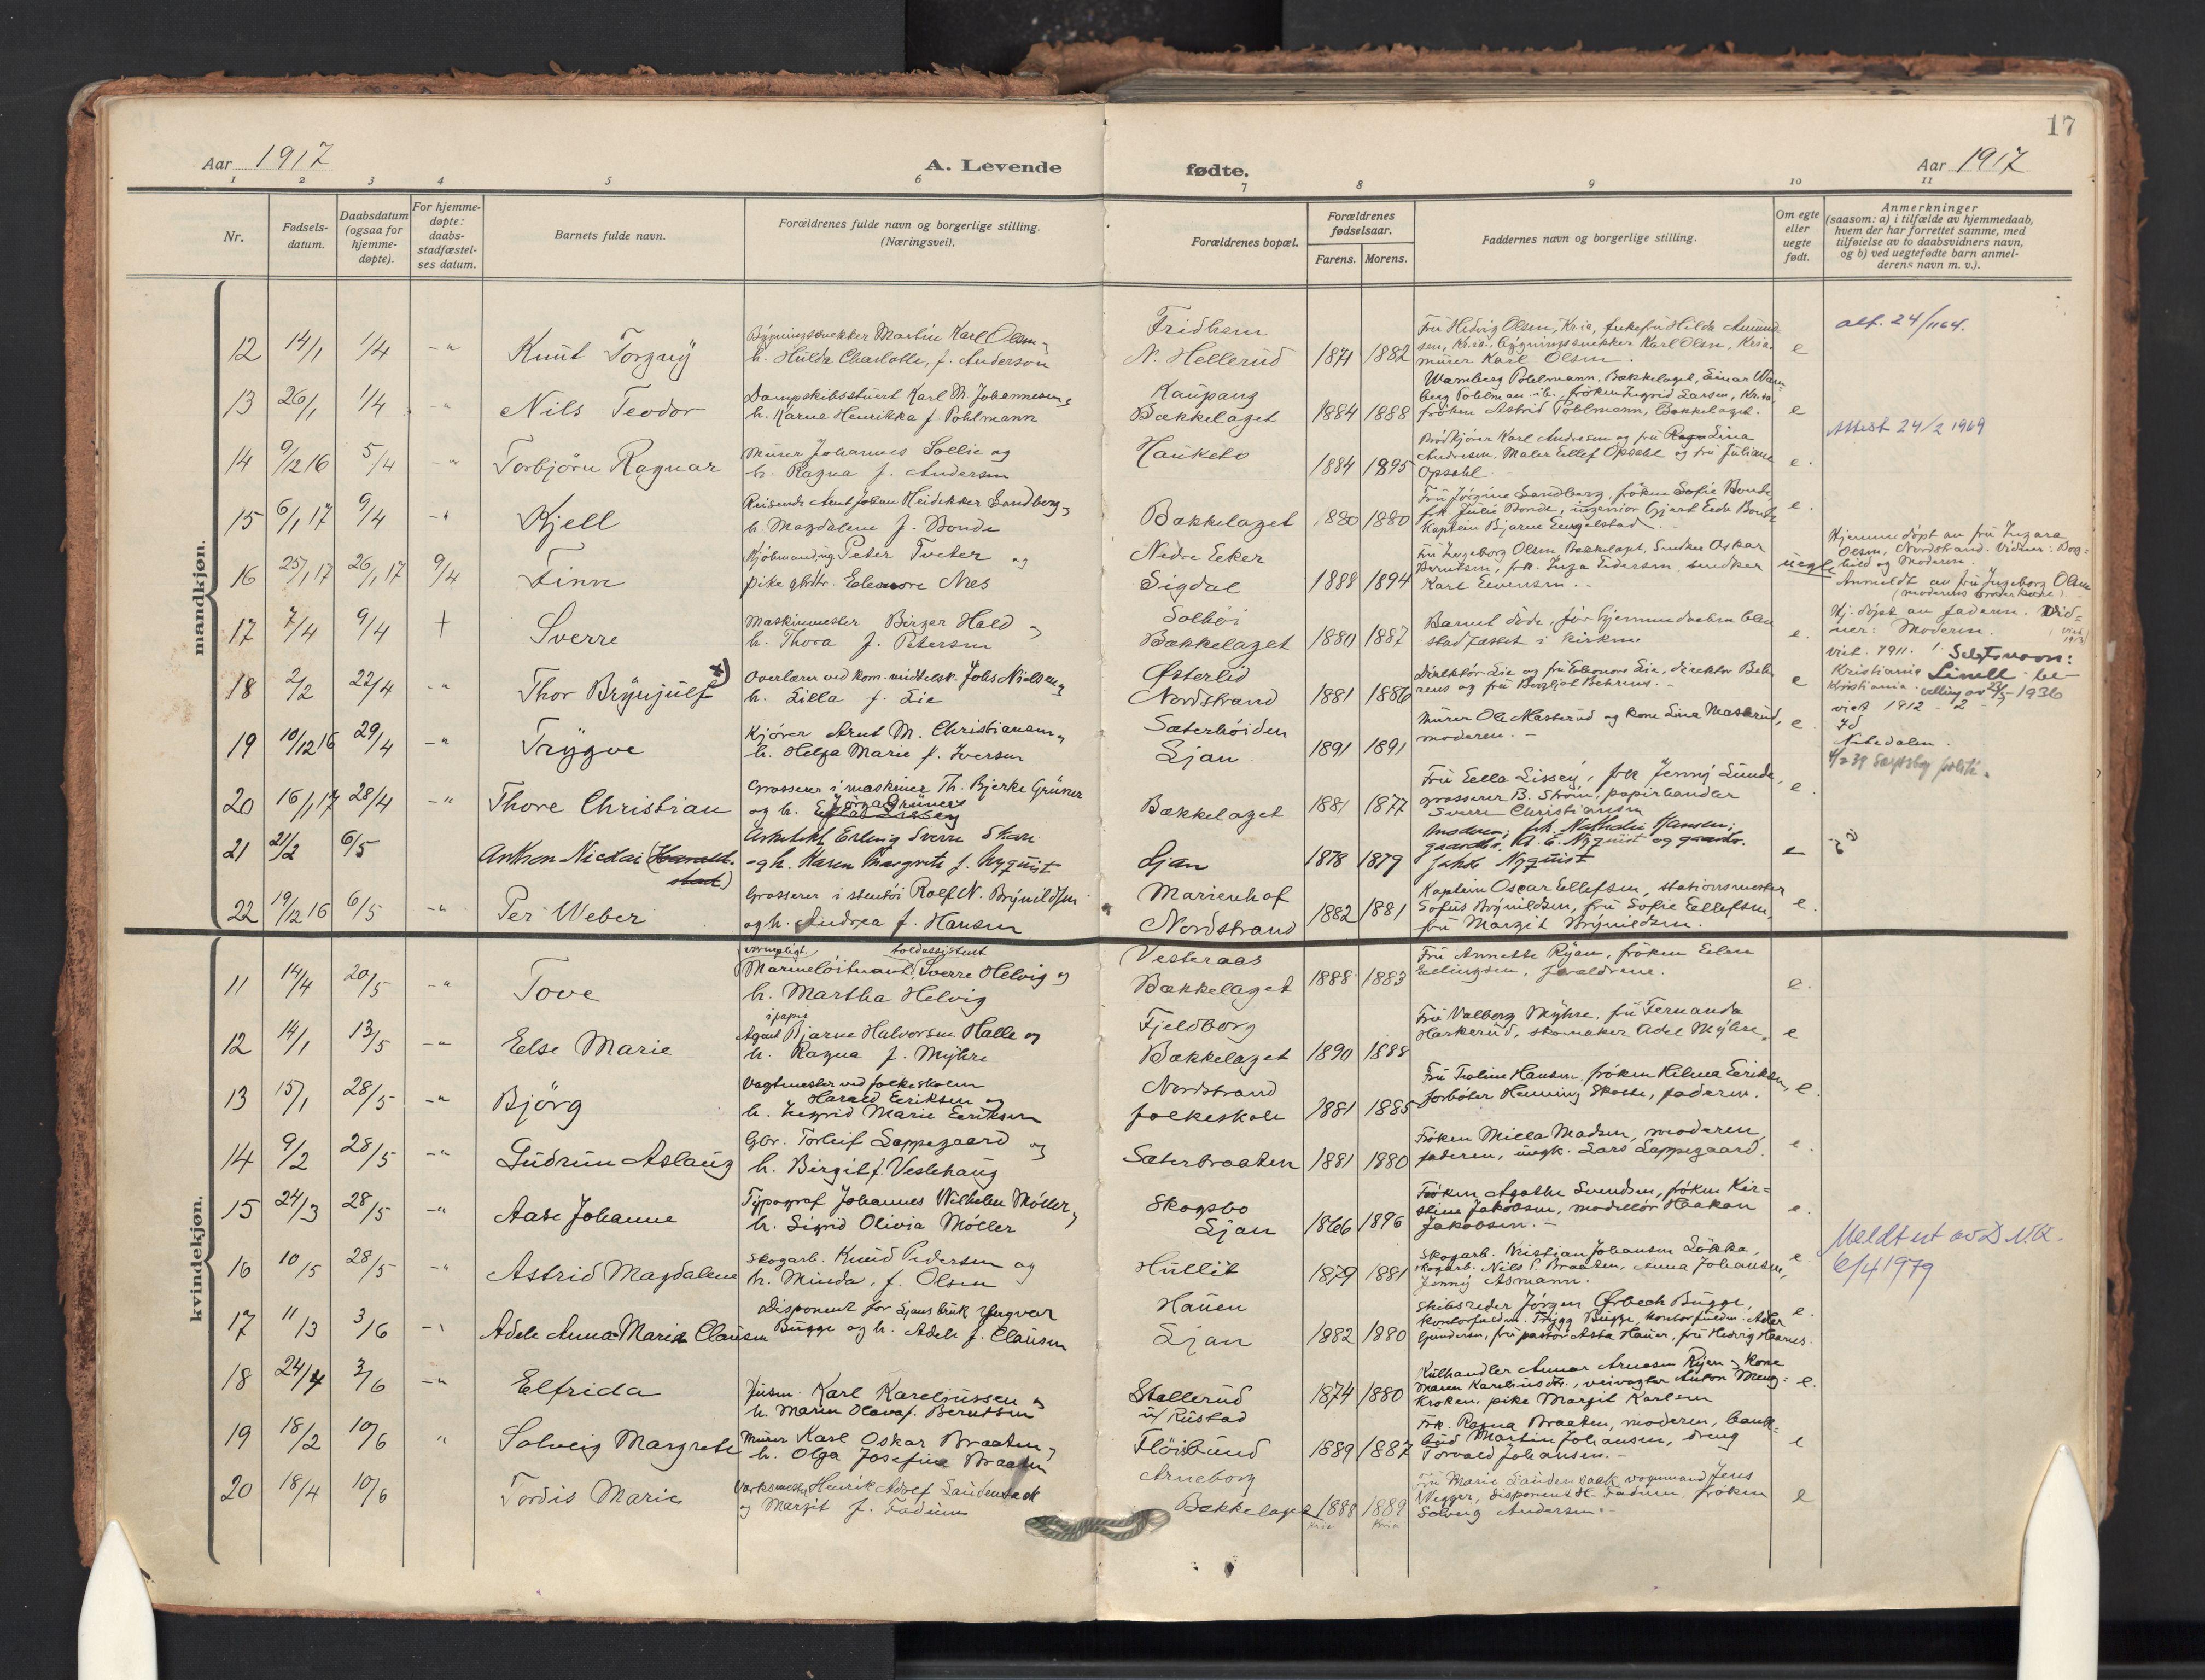 17
Aar 1917
A. Levende fødte.
Aar 1917
1 2 3 4 5 6 7 8 9 10 11
Nr.
Fødsels-
datum.
Daabsdatum
(ogsaa for
hjemme-
døpte).
For hjemme-
døpte:
daabs-
stadfæstel-
ses datum.
Barnets fulde navn.
Forældrenes fulde navn og borgerlige stilling.
(Næringsvei).
Forældrenes bopæl.
Forældrenes
fødselsaar.
Farens. Morens.
Faddernes navn og borgerlige stilling.
Om egte
eller
uegte
født.
Anmerkninger
(saasom: a) i tilfælde av hjemmedaab,
hvem der har forrettet samme, med
tilføielse av to daabsvidners navn,
og b) ved uegtefødte barn anmel-
derens navn m. v.).
mandkjøn.
12 14/1 1/4 -"- Knut Torgny
Bygningssnekker Martin Karl Olsen og
h. Hulda Charlotte, f. Anderson
Fridhem
N. Hellerud 1871 1882
Fru Hedvig Olsen, Kr.ia, enkefru Hilda Amund-
sen, Kr.ia, bygningssnekker Karl Olsen, Kr.ia
murer Karl Olsen.
e
att. 24/11 64.
13 26/1 1/4 -"- Nils Teodor
Dampskibsstuert Karl M. Johannesen og
h. Karna Henrikka f. Pohlmann
Kaupang
Bækkelaget 1884 1888
Warnberg Pohlmann, Bækkelaget, Einar Warn-
berg Pohlman ib., frøken Ingrid Larsen, Kr.ia
frøken Astrid Pohlmann, Bækkelaget.
e
Attest 24/2 1969
14 9/12 16 5/4 -"- Torbjørn Ragnar
Murer Johannes Sollie og
h. Ragna f. Andersen
Hauketo 1884 1895
Brødkjører Karl Andresen og fru Lina
Andresen, Maler Ellef Opsahl og fru Juliane
Opsahl.
e.
15 6/1 17 9/4 -"- Kjell
Reisende Agent Johan Heidekker Sandberg og
h. Magdalene f. Bonde
Bækkelaget 1880 1880
Fru Jørgine Sandberg, frøken Sofie Bonde,
frk Julie Bonde, ingeniør Gjert Bonde
Kaptein Bjarne Engelstad.
e.
16 25/1 17 26/1 17 9/4 Finn
Kjøbmand, ug. Peter Tveter og
pike Eleanore Nes
Nedre Eeker
Sigdal 1888 1894
Fru Ingeborg Olsen Bækkelaget, Snekker Oskar
Berntsen, frk. Inga Pedersen, snedker
Karl Evensen.
uegte
Hjemmedøpt av fru Ingara
Olsen, Nordstrand. Vidner: Bog-
hild og Moderen.
Anmeldt av fru Ingeborg Olsen
(moderens broderkone).
17 7/4 9/4 + Sverre
Maskinmester Birger Hald og
h. Thora f. Petersen
Solhøi
Bækkelaget 1880 1887
Barnet døde, før hjemmedaaben blev
stadfæstet i kirken.
e.
Hj. døpt av faderen. Vid-
ner: Moderen.
18 2/2 22/4 -"- Thor Brynjulf x)
Overlærer ved kom. middelsk. Johs Nielsen og
h. Lilla f. Lie
Østerlid
Nordstrand 1881 1886
Direktør Lie og fru Eleonore Lie, direktør Beh-
rens og fru Bergljot Behrens.
e
viet. 1911. Slegtsnavn:
Kristiania Linell. be-
Kristiania villing av 23/5-1936
19 10/12 16 29/4 -"- Trygve
Kjører Arnt M. Christiansen og
h. Helga Marie f. Iversen
Sæterhøiden
Ljan 1891 1891
Murer Ole Masterud og kone Lina Masterud,
moderen.
e.
viet 1912 - 2 -
Nitedalen.
20 16/1 17 28/4 -"- Thore Christian
Grosserer i maskiner Th. Bjerke Grüner
og h.
Bækkelaget 1881 1877
Fru Ella Lissey, frk Jenny Lunde,
grosserer B. Strøm, papirhandler
Sverre Christiansen
e.
21 21/2 6/5 Anthon Nicolai
Arkitekt Erling Sverre
og h. Karen Margrete f. Nyquist
Ljan 1878 1879
Moderen; frk. Nathalie Hansen;
gaardbr. A. E. Nyquist og gaardbr.
Jakob Nyquist
e
22 19/12 16 6/5 -"- Per Weber
Grosserer i stentøi Rolf N. Brynildsen
og h. Andrea f. Hansen
Marienhof
Nordstrand 1882 1881
Kaptein Oscar Ellefsen, stationsmester
Sofus Brynildsen, fru Sofie Ellefsen,
fru Margit Brynildsen.
e.
kvindekjøn.
11 14/4 20/5 -"- Tove
vernepligt. toldassistent
Marineløitnant, Sverre Helvig og
h. Martha Helvig
Vesteraas
Bækkelaget 1888 1883
Fru Annette Ryan, frøken Ellen
Ellingsen, forældrene.
e.
12 14/1 13/5 -"- Else Marie
i papir
Agent Bjarne Halvorsen Halle og
h. Ragna f. Myhre
Fjeldborg
Bækkelaget 1890 1888
Fru Valborg Myhre, fru Fernanda
Haskerud, skomaker Adel Myhre.
e
13 15/1 28/5 -"- Bjørg
Vagtmester ved folkeskolen
Harald Eriksen og
h. Ingrid Marie Eriksen
Nordstrand
folkeskole 1881 1885
Fru Traline Hansen, frøken Helma Eriksen,
forbøter Henning Skolte, faderen.
e.
14 9/2 28/5 -"- Gudrun Aslaug
Gbr. Torleif Lappegaard og
h. Birgit f. Veslehaug
Sæterbraaten 1881 1880
Frøken Milla Madsen, moderen,
faderen, ungk. Lars Lappegaard.
e.
15 24/3 28/5 -"- Aase Johanne
Typograf Johannes Wilhelm Møller og
h. Sigrid Olivia Møller
Skogsbo
Ljan 1866 1896
Frøken Agathe Svendsen, frøken Kir-
stine Jakobsen, modellør Haakon
Jakobsen.
e.
16 10/5 28/5 -"- Astrid Magdalene
Skogarb. Knud Pedersen og
h. Minda, f. Olsen
Hullit 1879 1881
Skogarb. Kristian Johansen Løkka,
skogarb. Nils P. Braaten, Anna Johansen,
Jenny Asmann.
e
Meldt ut av D.N.K.
6/4 1979
17 11/3 3/6 -"- Adele Anna-Maria Clausen
Disponent for Ljans bruk Yngvar
Bugge og h. Adele f. Clausen
Hauen
Ljan 1882 1880
Skibsreder Jørgen Ørbech Bugge,
kontorfuldm. Trygg Bugge, kontorfuldm. Asler
Gundersen, fru pastor Asta Hauer, fru Hedvig Haanes.
e.
18 24/4 3/6 -"- Elfrida
Husm. Karl Kareliussen og
h. Maren Olava f. Berntsen
Stallerud
u/ Rustad 1874 1880
Kulhandler Annar Arnesen Ryen og kone
Maren Kareliusdtr., veivogter Anton Meng-
kroken, pike Margit Karlsen
e.
19 18/2 10/6 " Solveig Margrete
Murer Karl Oskar Braaten og
h. Olga Josefine Braaten
Fløisbund 1889 1887
Frk. Ragna Braaten, moderen, bank-
bud Martin Johansen, dreng
Torvald Johansen.
e
20 18/4 10/6 Tordis Marie
Verksmester Henrik Adolf Laudensack
og Margit f. Fadum
Arneborg
Bækkelaget 1888 1889
Kria Kria
Fru Marie Laudensack, vognmand Jens
Wegger, disponent H. Fadum, frøken
Solveig Andersen.
e